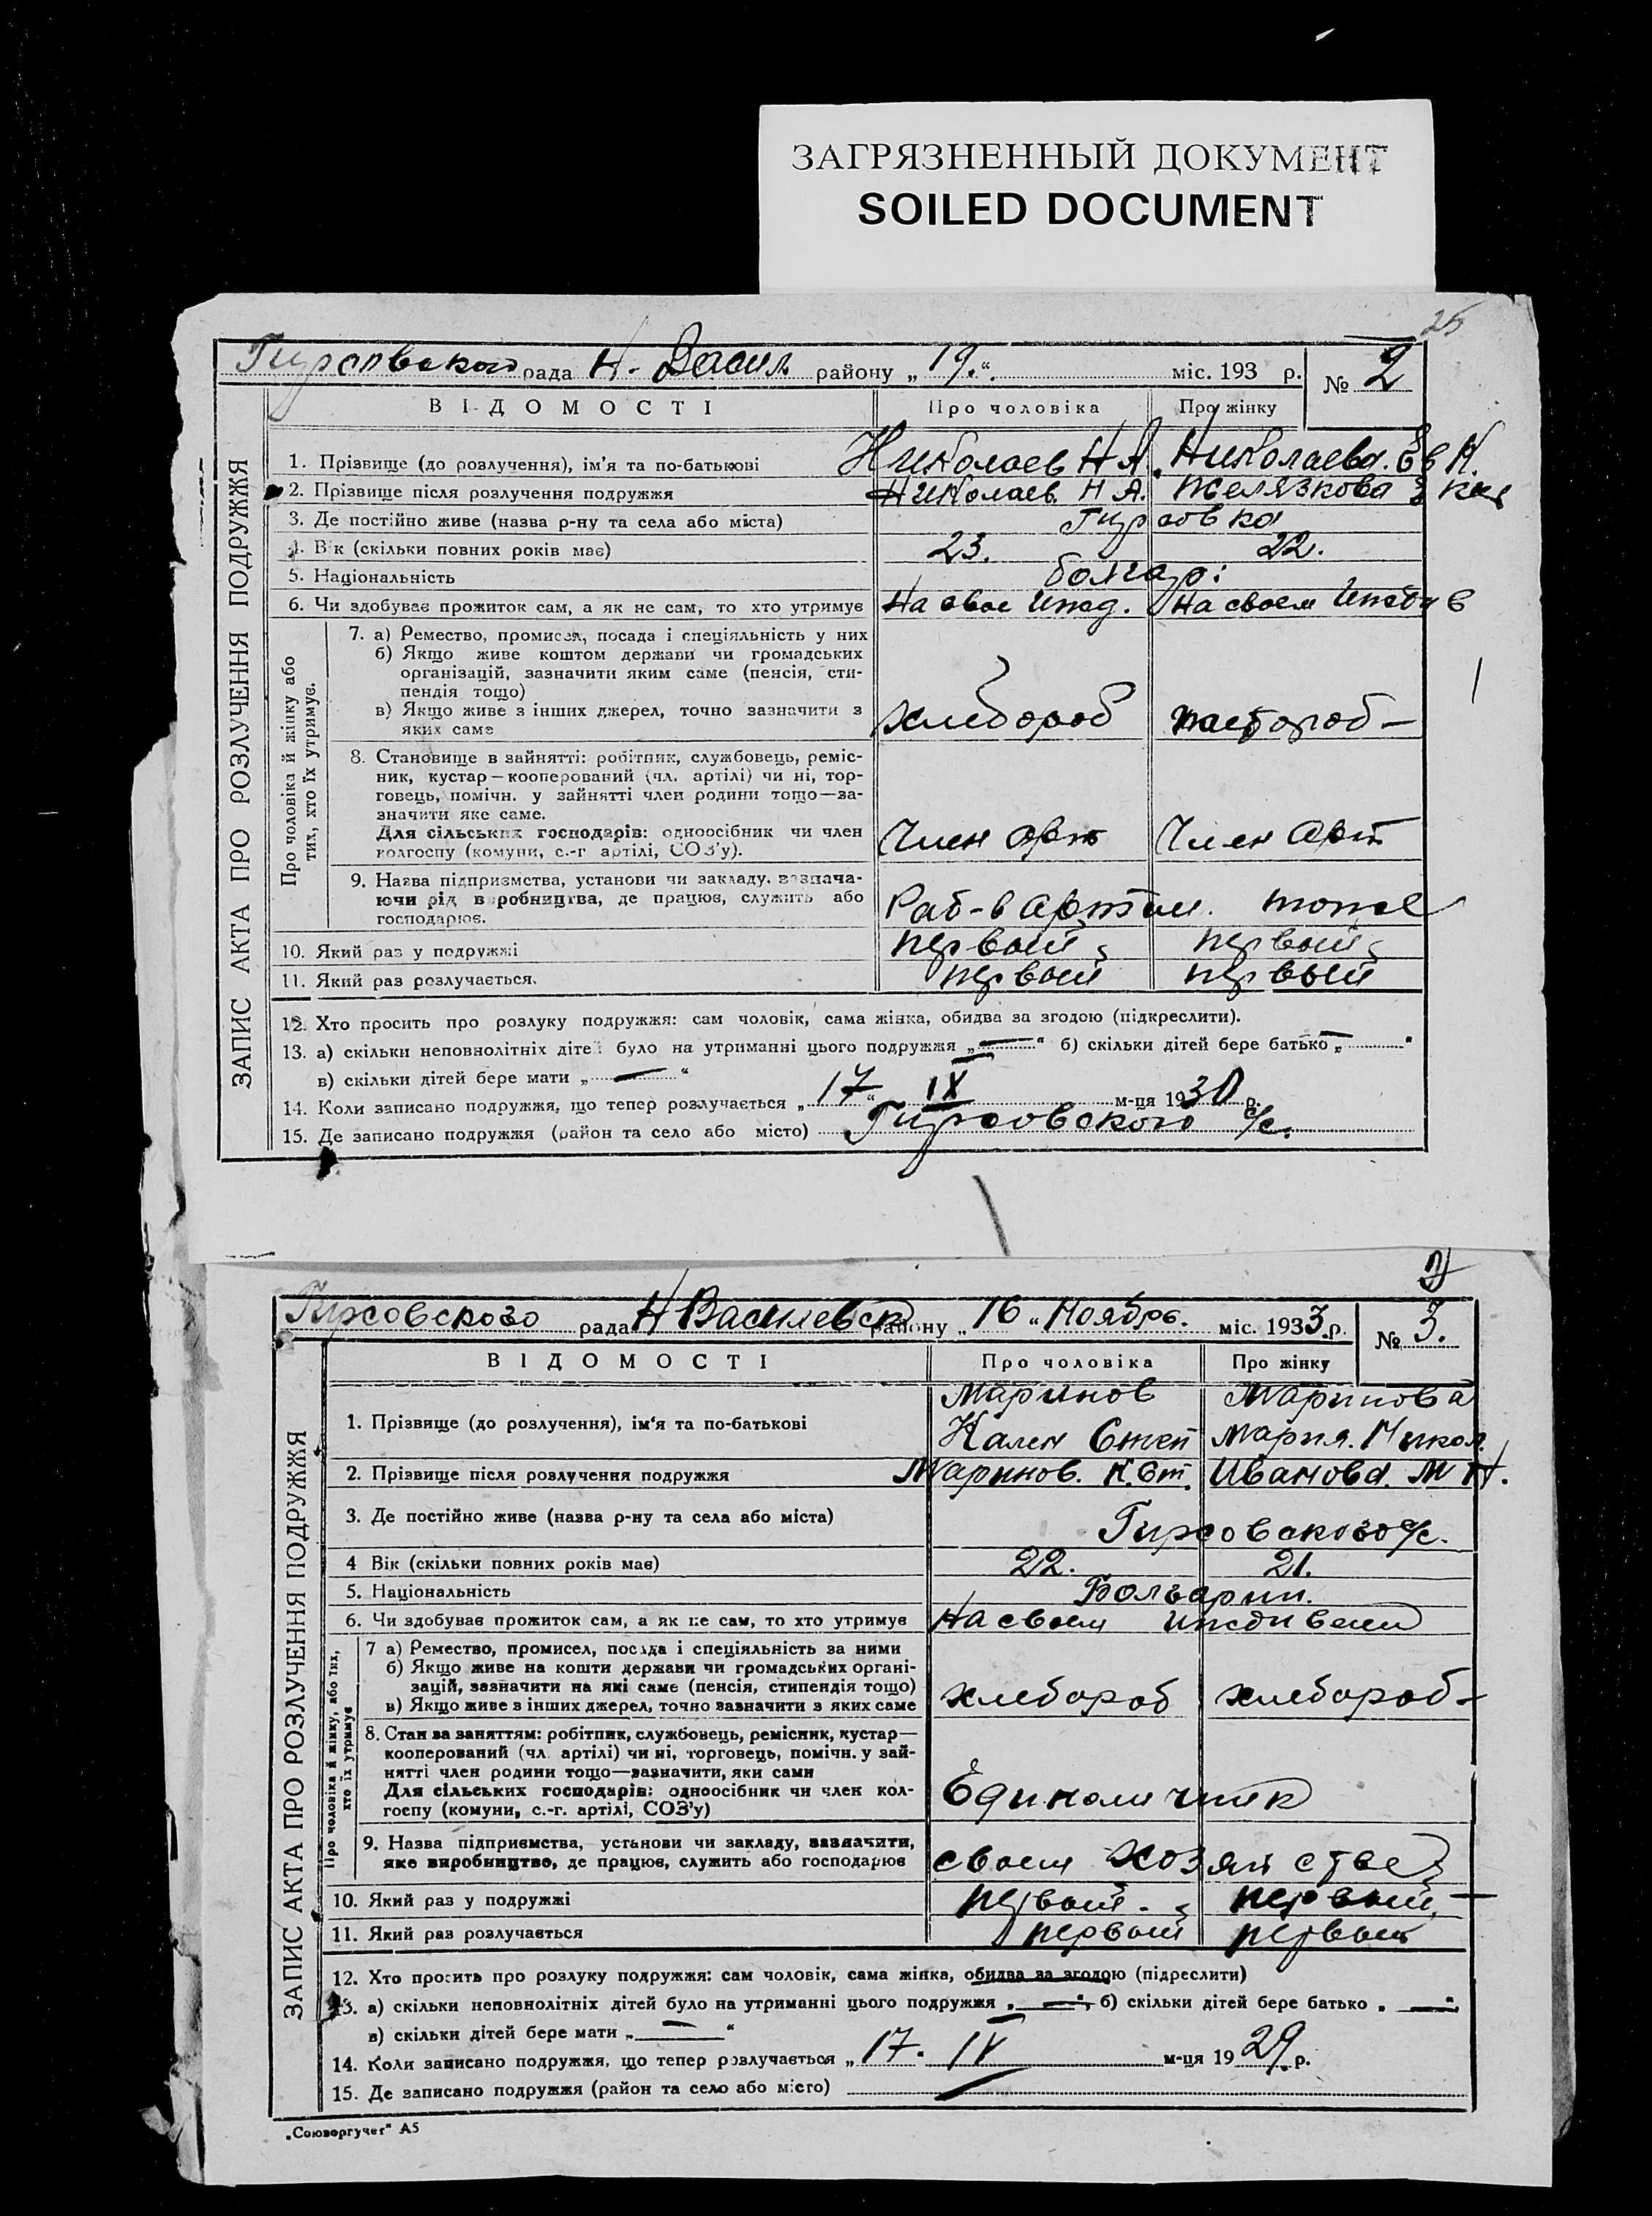 ЗАГРЯЗНЕННЫЙ ДОКУМЕНТ
SOILED DOCUMENT
25
Гирсовского рада Н. Васил району „19.“ міс. 193 р. № 2
ВІДОМОСТІ Про чоловіка Про жінку
ЗАПИС АКТА ПРО РОЗЛУЧЕННЯ ПОДРУЖЖЯ
1. Прізвище (до розлучення), ім’я та по-батькові Николаев Н А. Николаева. Ев Н.
2. Прізвище після розлучення подружжя Николаев Н А. Желязкова
3. Де постійно живе (назва р-ну та села або міста) Гирсовка
4. Вік (скільки повних років має) 23. 22.
5. Національність болгар:
6. Чи здобуває прожиток сам, а як не сам, то хто утримує На свое Ижд. На своем Иждив
Про чоловіка й жінку або тих, хто їх утримує.
7. а) Ремество, промисел, посада і спеціяльність у них
б) Якщо живе коштом держави чи громадських
організацій, зазначити яким саме (пенсія, сти-
пендія тощо)
в) Якщо живе з інших джерел, точно зазначити з
яких саме хлебороб хлебороб —
8. Становище в зайнятті: робітник, службовець, реміс-
ник, кустар—кооперований (чл. артілі) чи ні, тор-
говець, помічн. у зайнятті член родини тощо—за-
значити яке саме.
Для сільських господарів: одноосібник чи член
колгоспу (комуни, с.-г артілі, СОЗ’у). Член Арт Член Арт
9. Назва підприємства, установи чи закладу, зазнача-
ючи рід виробництва, де працює, служить або
господарює. Раб-в Артели. тоже
10. Який раз у подружжі первый первый
11. Який раз розлучається. первый первый
12. Хто просить про розлуку подружжя: сам чоловік, сама жінка, обидва за згодою (підкреслити).
13. а) скільки неповнолітніх дітей було на утриманні цього подружжя „—“ б) скільки дітей бере батько „—“
в) скільки дітей бере мати „—“
14. Коли записано подружжя, що тепер розлучається „17“ IX м-ця 1930 р.
15. Де записано подружжя (район та село або місто) Гирсовского с/с.
Гирсовского рада Н Василевск району „16“ Ноябрь. міс. 1933 р. № 3.
ВІДОМОСТІ Про чоловіка Про жінку
ЗАПИС АКТА ПРО РОЗЛУЧЕННЯ ПОДРУЖЖЯ
Маринов Маринова
1. Прізвище (до розлучення), ім‘я та по-батькові Кален Степ Мария. Никол.
2. Прізвище після розлучення подружжя Маринов. К. Ст. Иванова. М Н.
3. Де постійно живе (назва р-ну та села або міста) Гирсовского с/с.
4 Вік (скільки повних років має) 22. 21.
5. Національність Болгарин.
6. Чи здобуває прожиток сам, а як не сам, то хто утримує На своем иждивении
Про чоловіка й жінку, або тих, хто їх утримує
7 а) Ремество, промисел, посада і спеціяльність за ними
б) Якщо живе на кошти держави чи громадських органі-
зацій, зазначити на які саме (пенсія, стипендія тощо)
в) Якщо живе в інших джерел, точно зазначити з яких саме хлебороб хлебороб —
8. Стан за заняттям: робітник, службовець, ремісник, кустар—
кооперований (чл. артілі) чи ні, торговець, помічн. у зай-
нятті член родини тощо—зазначити, яки сами
Для сільських господарів: одноосібник чи член кол-
госпу (комуни, с.-г. артілі, СОЗ’у) Единоличник
9. Назва підприємства, установи чи закладу, зазначити,
яке виробництво, де працює, служить або господарює своем хозяйстве
10. Який раз у подружжі первый. первый —
11. Який раз розлучається первый первый
12. Хто просить про розлуку подружжя: сам чоловік, сама жінка, обидва за згодою (підреслити)
13. а) скільки неповнолітніх дітей було на утриманні цього подружжя „—“ б) скільки дітей бере батько „—“
в) скільки дітей бере мати „—“
14. Коли записано подружжя, що тепер розлучається „17“ IV м-ця 1929 р.
15. Де записано подружжя (район та село або місто)
„Союзоргучет“ А5